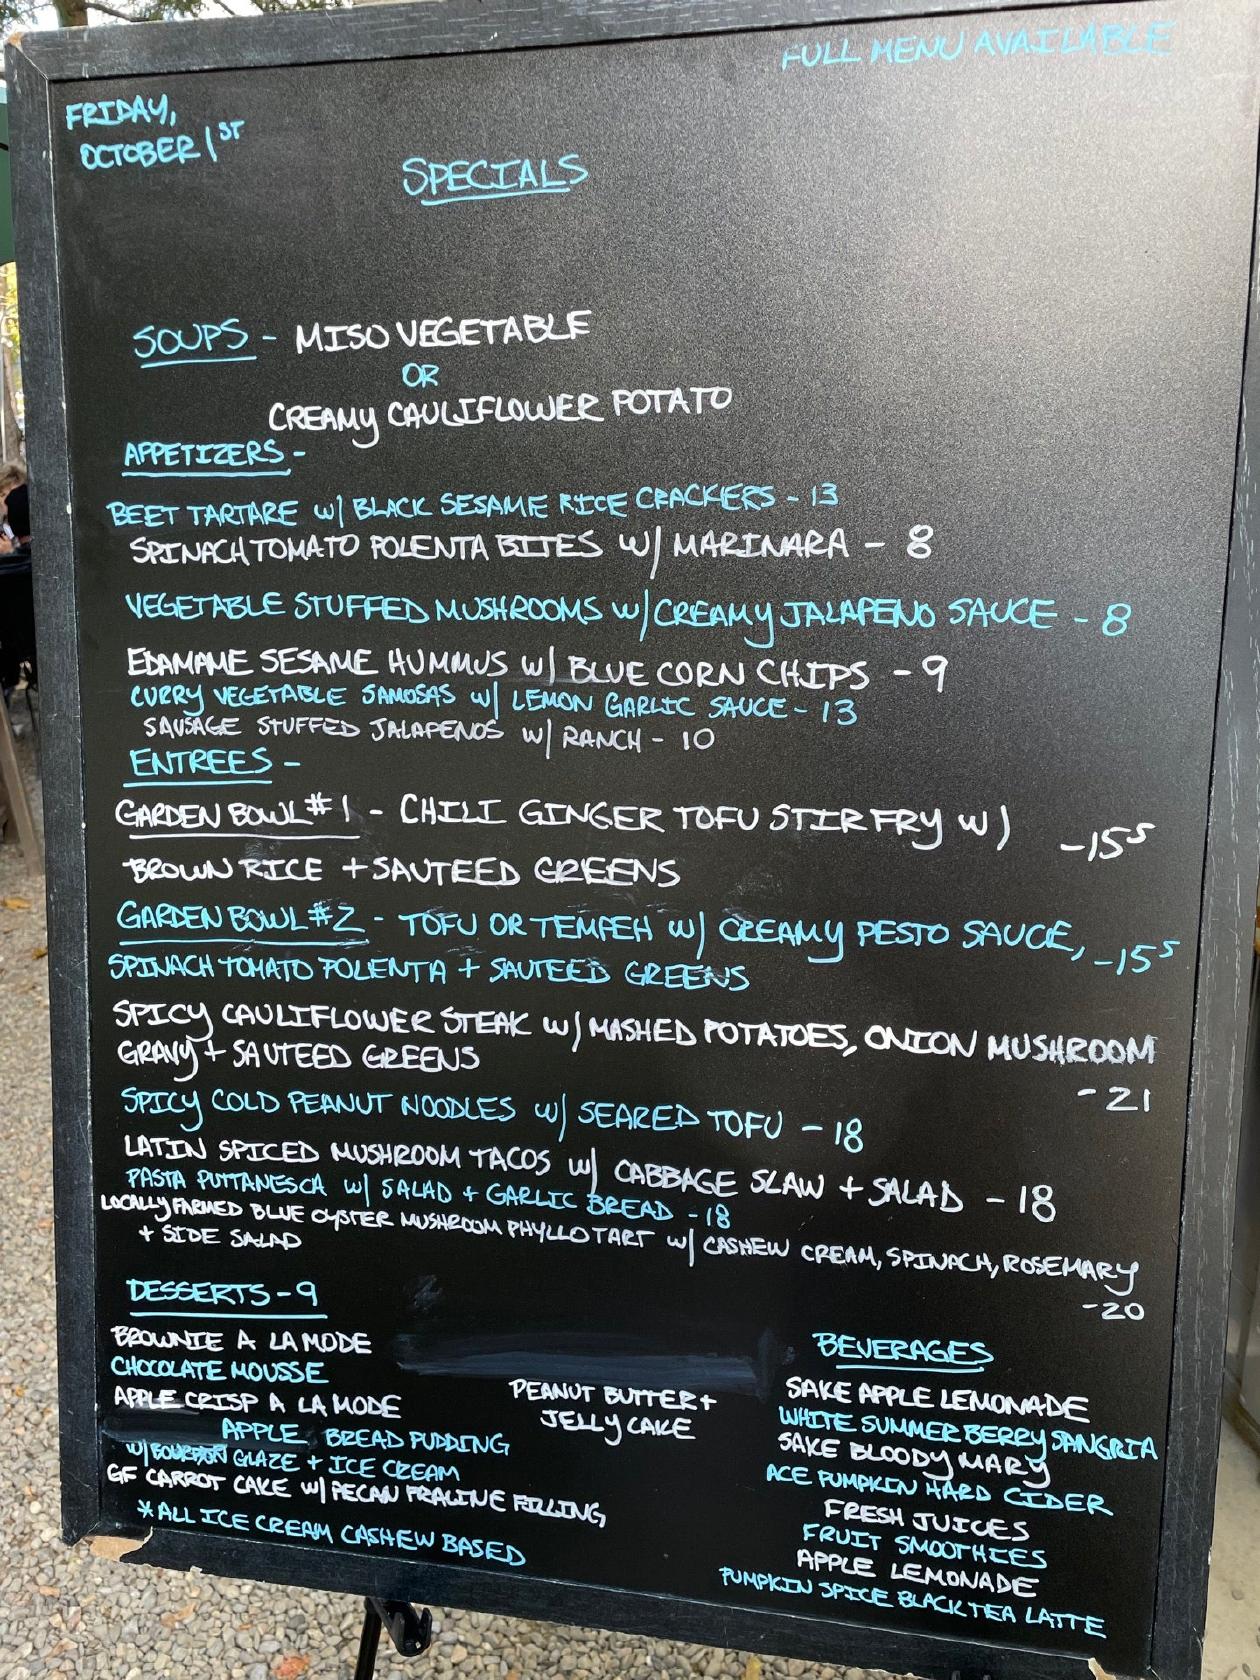 FULL MENU AVAILABLE
FRIDAY,
OCTOBER 1ST
SPECIALS
SOUPS - MISO VEGETABLE
OR
CREAMY CAULIFLOWER POTATO
APPETIZERS -
BEET TARTARE W/ BLACK SESAME RICE CRACKERS - 13
SPINACH TOMATO POLENTA BITES W/ MARINARA - 8
VEGETABLE STUFFED MUSHROOMS W/ CREAMY JALAPENO SAUCE - 8
EDAMAME SESAME HUMMUS W/ BLUE CORN CHIPS - 9
CURRY VEGETABLE SAMOSAS W/ LEMON GARLIC SAUCE - 13
SAUSAGE STUFFED JALAPENOS W/ RANCH - 10
ENTREES -
GARDEN BOWL #1 - CHILI GINGER TOFU STIR FRY W/ -15⁵
BROWN RICE + SAUTEED GREENS
GARDEN BOWL #2 - TOFU OR TEMPEH W/ CREAMY PESTO SAUCE, -15⁵
SPINACH TOMATO POLENTA + SAUTEED GREENS
SPICY CAULIFLOWER STEAK W/ MASHED POTATOES, ONION MUSHROOM
GRAVY + SAUTEED GREENS
-21
SPICY COLD PEANUT NOODLES W/ SEARED TOFU - 18
LATIN SPICED MUSHROOM TACOS W/ CABBAGE SLAW + SALAD - 18
PASTA PUTTANESCA W/ SALAD + GARLIC BREAD - 18
LOCALLY FARMED BLUE OYSTER MUSHROOM PHYLLO TART W/ CASHEW CREAM, SPINACH, ROSEMARY
+ SIDE SALAD
-20
DESSERTS - 9
BROWNIE A LA MODE
CHOCOLATE MOUSSE
APPLE CRISP A LA MODE
APPLE BREAD PUDDING
W/ BOURBON GLAZE + ICE CREAM
GF CARROT CAKE W/ PECAN PRALINE FILLING
*ALL ICE CREAM CASHEW BASED
PEANUT BUTTER +
JELLY CAKE
BEVERAGES
SAKE APPLE LEMONADE
WHITE SUMMER BERRY SANGRIA
SAKE BLOODY MARY
ACE PUMPKIN HARD CIDER
FRESH JUICES
FRUIT SMOOTHIES
APPLE LEMONADE
PUMPKIN SPICE BLACK TEA LATTE